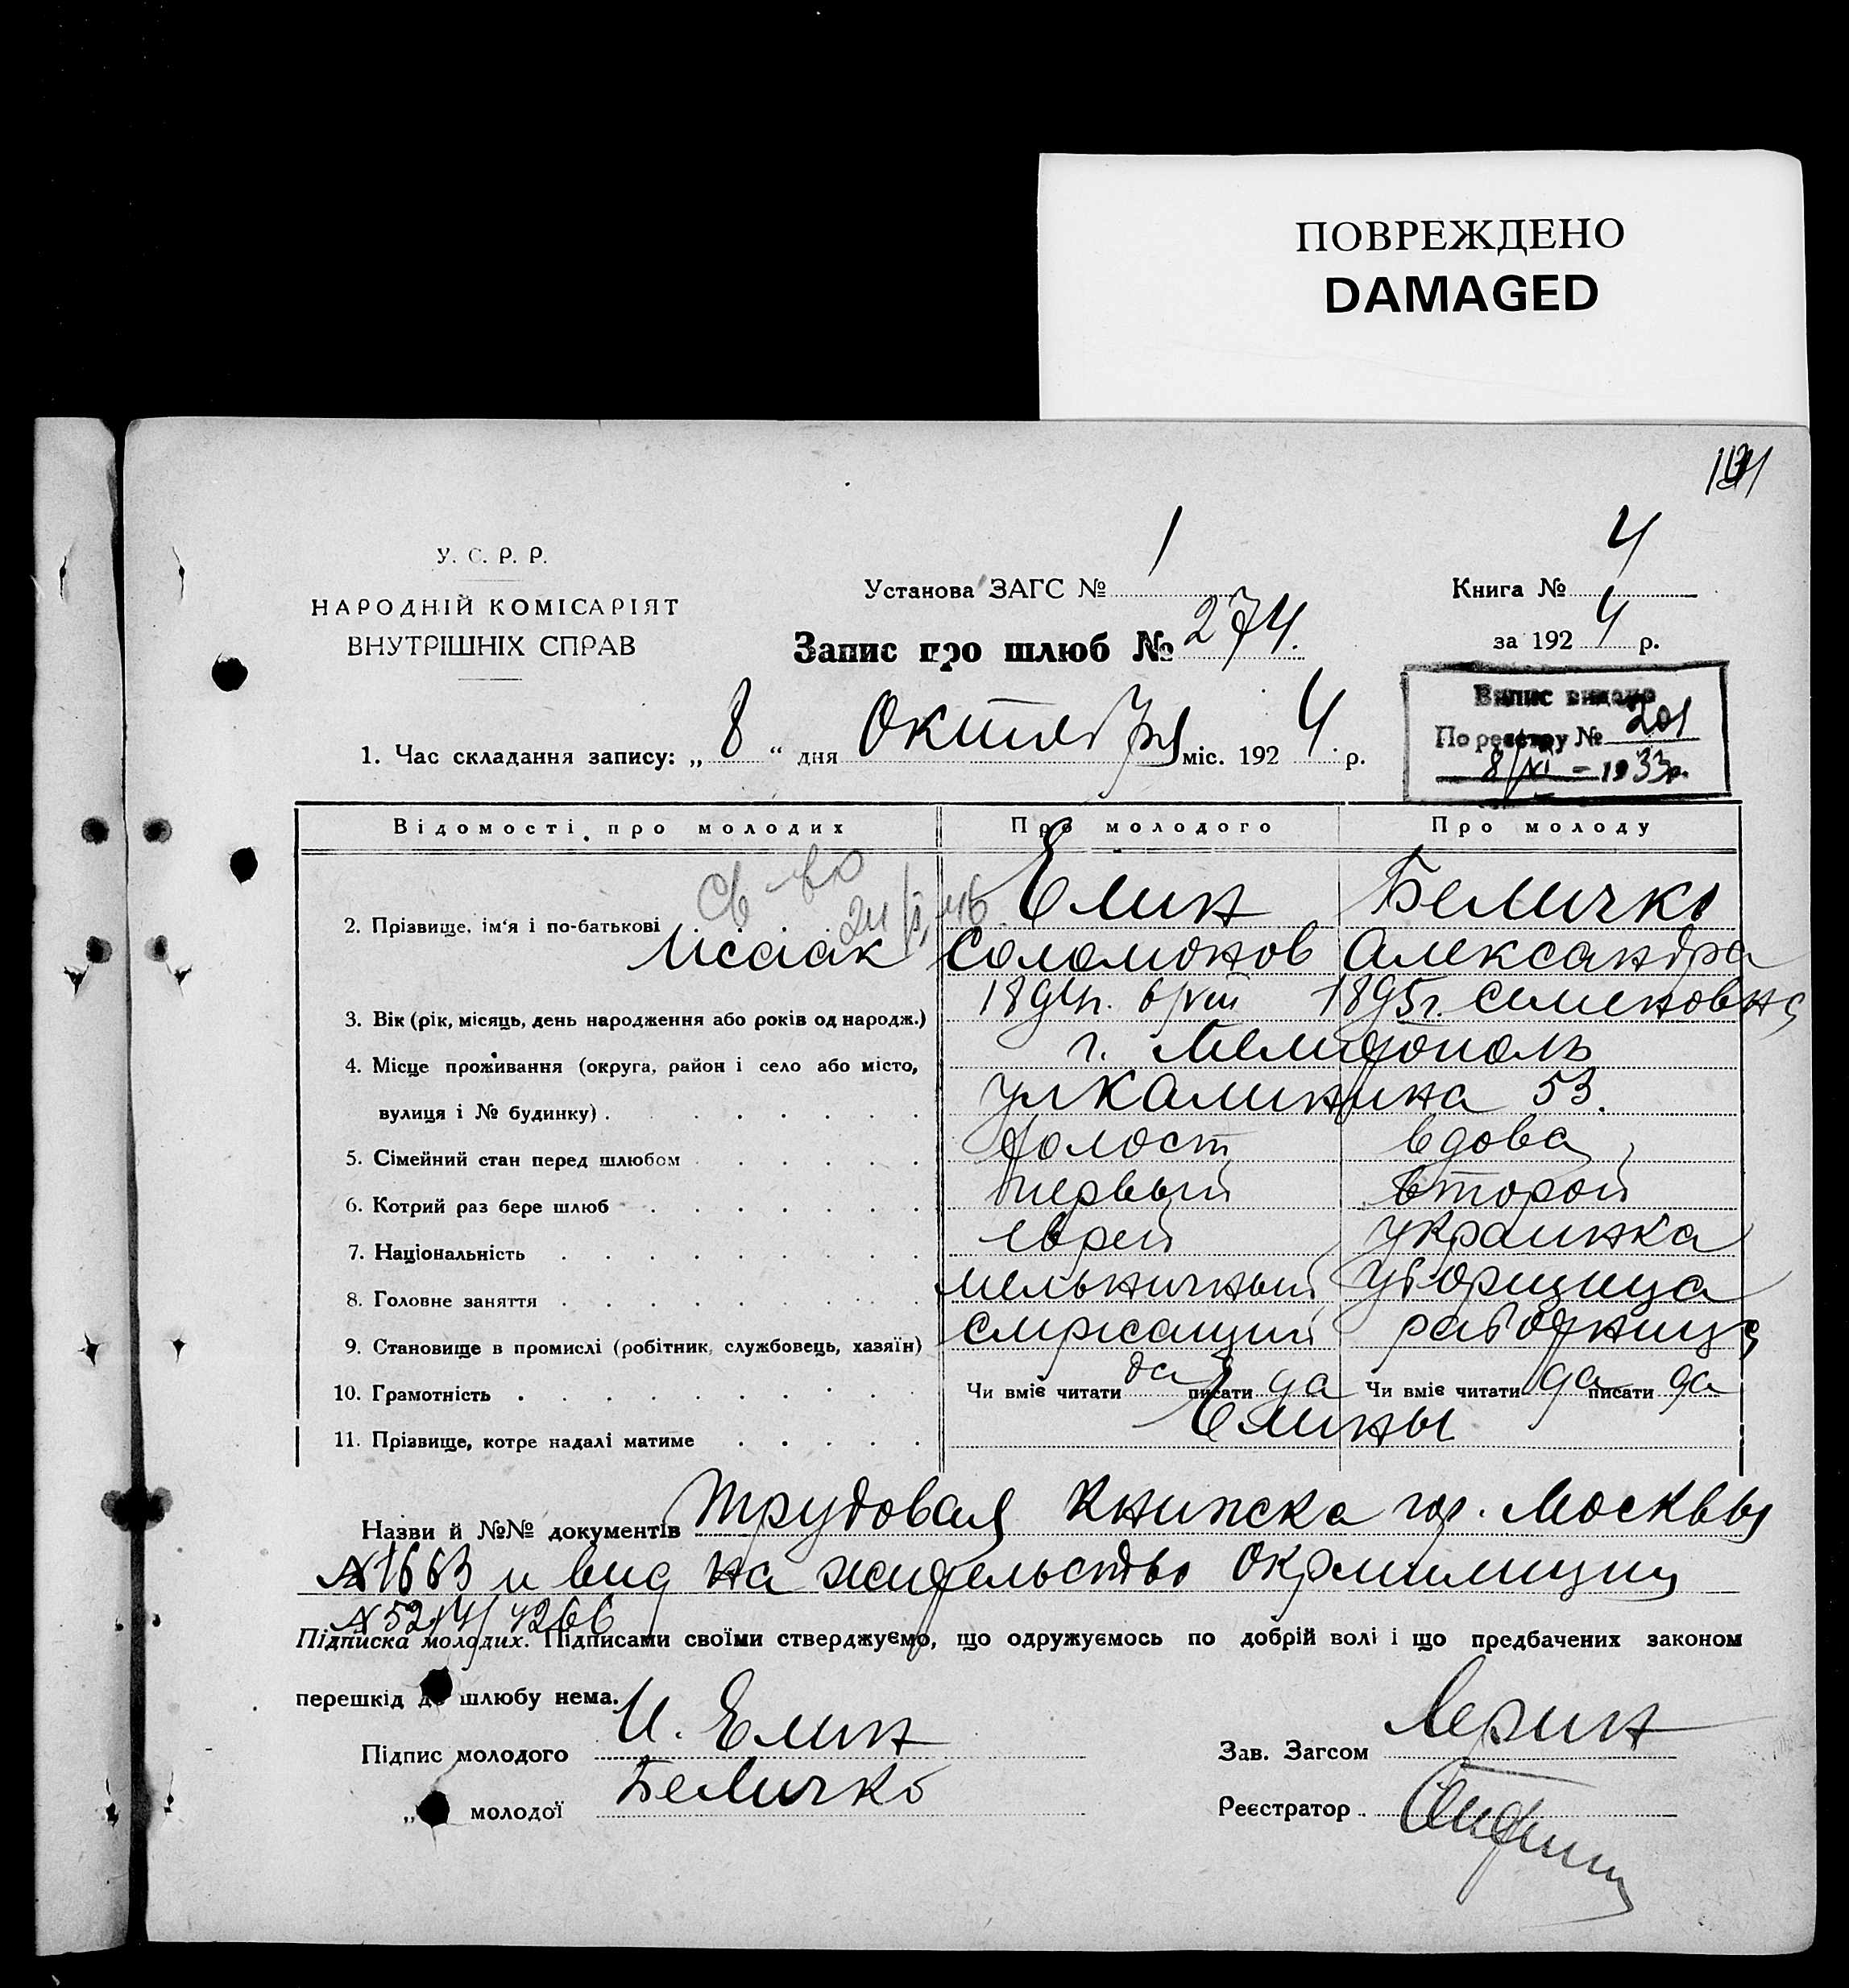 ПОВРЕЖДЕНО
DAMAGED
У. С. Р. Р.
НАРОДНІЙ КОМІСАРІЯТ
ВНУТРІШНІХ СПРАВ
Установа ЗАГС № 1
Книга № 4
Запис про шлюб № 274.
за 1924 р.
Випис видано
По реєстру № 201
8/XI - 1933р.
1. Час складання запису: „8“ дня Октября міс. 1924 р.
Відомості про молодих Про молодого Про молоду
Св-во
2. Прізвище, ім'я і по-батькові Елин Беличко
Исаак Соломонов Александра
3. Вік (рік, місяць, день народження або років од народж.) 1894г. 1895г. Семеновна
4. Місце проживання (округа, район і село або місто, г. Мелитополь
вулиця і № будинку) ул Калинина 53.
5. Сімейний стан перед шлюбом холост вдова
6. Котрий раз бере шлюб первый второй
7. Національність еврей украинка
8. Головне заняття мельничный уборщица
9. Становище в промислі (робітник, службовець, хазяїн) служащий работница
10. Грамотність Чи вміє читати да писати да Чи вміє читати да писати да
11. Прізвище, котре надалі матиме Елины
Назви й №№ документів Трудовая книжка гор. Москвы
№1663 и вид на жительство Окрмилиции
№5214/4266
Підписка молодих. Підписами своїми стверджуємо, що одружуємось по добрій волі і що предбачених законом
перешкід до шлюбу нема.
Підпис молодого И. Елин
Зав. Загсом
„ молодої Беличко
Реєстратор